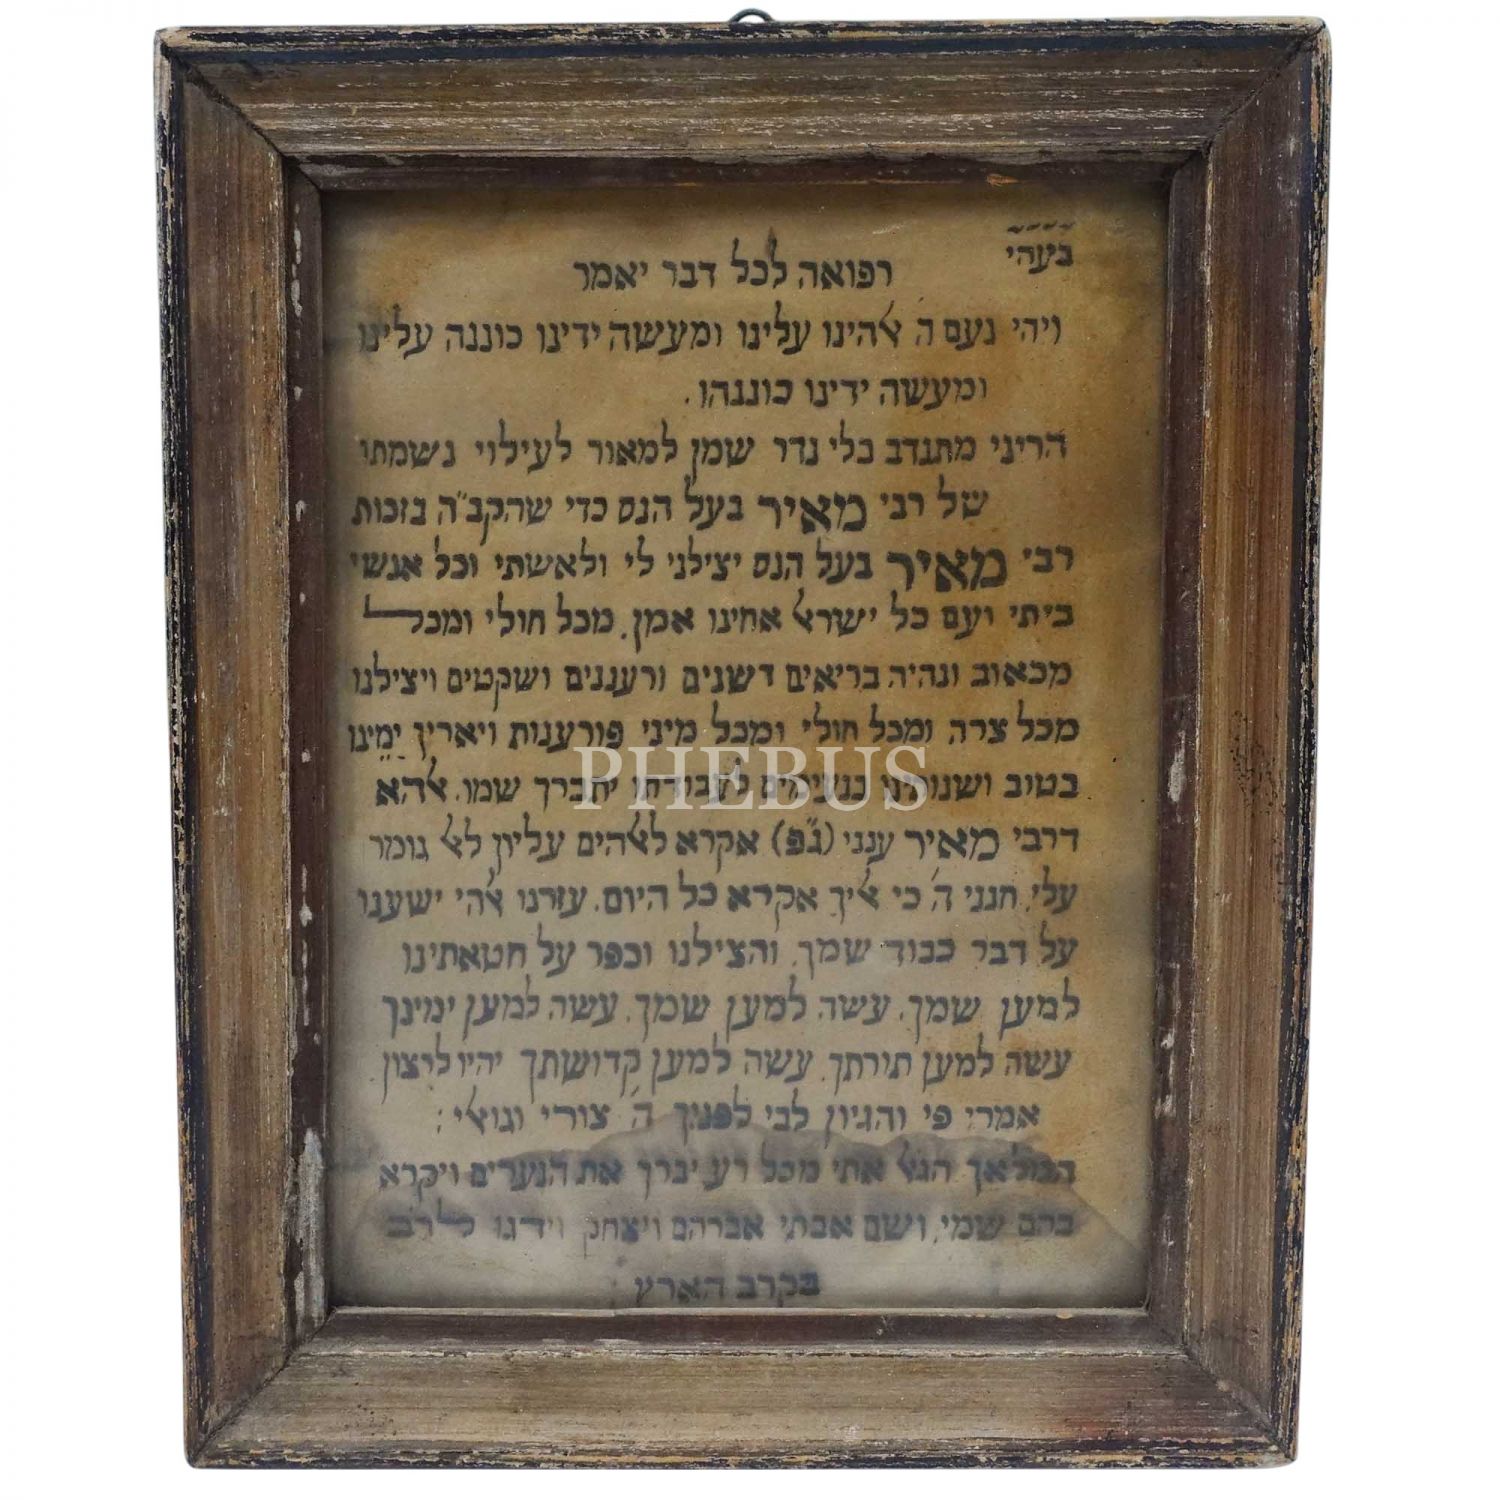 בעהי
רפואה לכל דבר יאמר
ויהי נעם ה' אלהינו עלינו ומעשה ידינו כוננה עלינו
ומעשה ידינו כוננהו.
הריני מתנדב בלי נדר שמן למאור לעילוי נשמתו
של רבי מאיר בעל הנס כדי שהקב"ה בזכות
רבי מאיר בעל הנס יצילני לי ולאשתי וכל אנשי
ביתי ועם כל ישראל אחינו אמן. מכל חולי ומכל
מכאוב ונהיה בריאים דשנים ורעננים ושקטים ויצילנו
מכל צרה ומכל חולי ומכל מיני פורענות ויאריך ימינו
בטוב ושנותינו בנעימים לעבודתו יתברך שמו. אלהא
דרבי מאיר ענני (ג"פ) אקרא לאלהים עליון לאל גומר
עלי. חנני ה' כי אליך אקרא כל היום. עזרנו אלהי ישענו
על דבר כבוד שמך. והצילנו וכפר על חטאתינו
למען שמך. עשה למען שמך. עשה למען ימינך
עשה למען תורתך. עשה למען קדושתך יהיו לרצון
אמרי פי והגיון לבי לפניך ה' צורי וגואלי:
המלאך הגאל אתי מכל רע יברך את הנערים ויקרא
בהם שמי. ושם אבתי אברהם ויצחק וידגו לרב
בקרב הארץ
PHEBUS